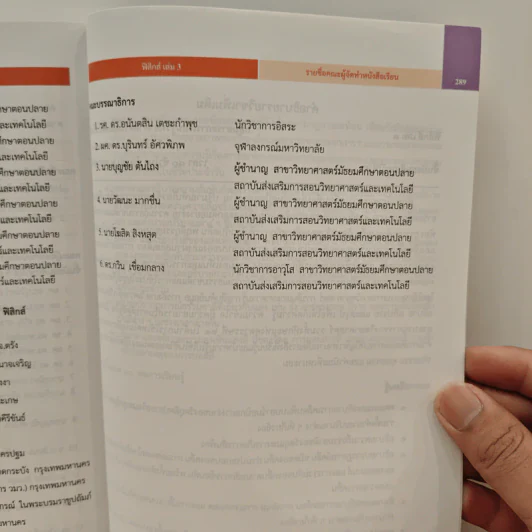 ฟิสิกส์ เล่ม 3
รายชื่อคณะผู้จัดทำหนังสือเรียน
289
คณะบรรณาธิการ
1. รศ. ดร.อนันตสิน เตชะกำพุช นักวิชาการอิสระ
2. ผศ. ดร.บุรินทร์ อัศวพิภพ จุฬาลงกรณ์มหาวิทยาลัย
3. นายบุญชัย ตันไถง ผู้ชำนาญ สาขาวิทยาศาสตร์มัธยมศึกษาตอนปลาย
สถาบันส่งเสริมการสอนวิทยาศาสตร์และเทคโนโลยี
4. นายวัฒนะ มากชื่น ผู้ชำนาญ สาขาวิทยาศาสตร์มัธยมศึกษาตอนปลาย
สถาบันส่งเสริมการสอนวิทยาศาสตร์และเทคโนโลยี
5. นายโฆสิต สิงหสุต ผู้ชำนาญ สาขาวิทยาศาสตร์มัธยมศึกษาตอนปลาย
สถาบันส่งเสริมการสอนวิทยาศาสตร์และเทคโนโลยี
6. ดร.กวิน เชื่อมกลาง นักวิชาการอาวุโส สาขาวิทยาศาสตร์มัธยมศึกษาตอนปลาย
สถาบันส่งเสริมการสอนวิทยาศาสตร์และเทคโนโลยี
ศึกษาตอนปลาย
และเทคโนโลยี
ศึกษาตอนปลาย
และเทคโนโลยี
ศึกษาตอนปลาย
และเทคโนโลยี
ศึกษาตอนปลาย
และเทคโนโลยี
ศึกษาตอนปลาย
และเทคโนโลยี
ฟิสิกส์
กรุงเทพมหานคร
กรุงเทพมหานคร
ในพระบรมราชูปถัมภ์